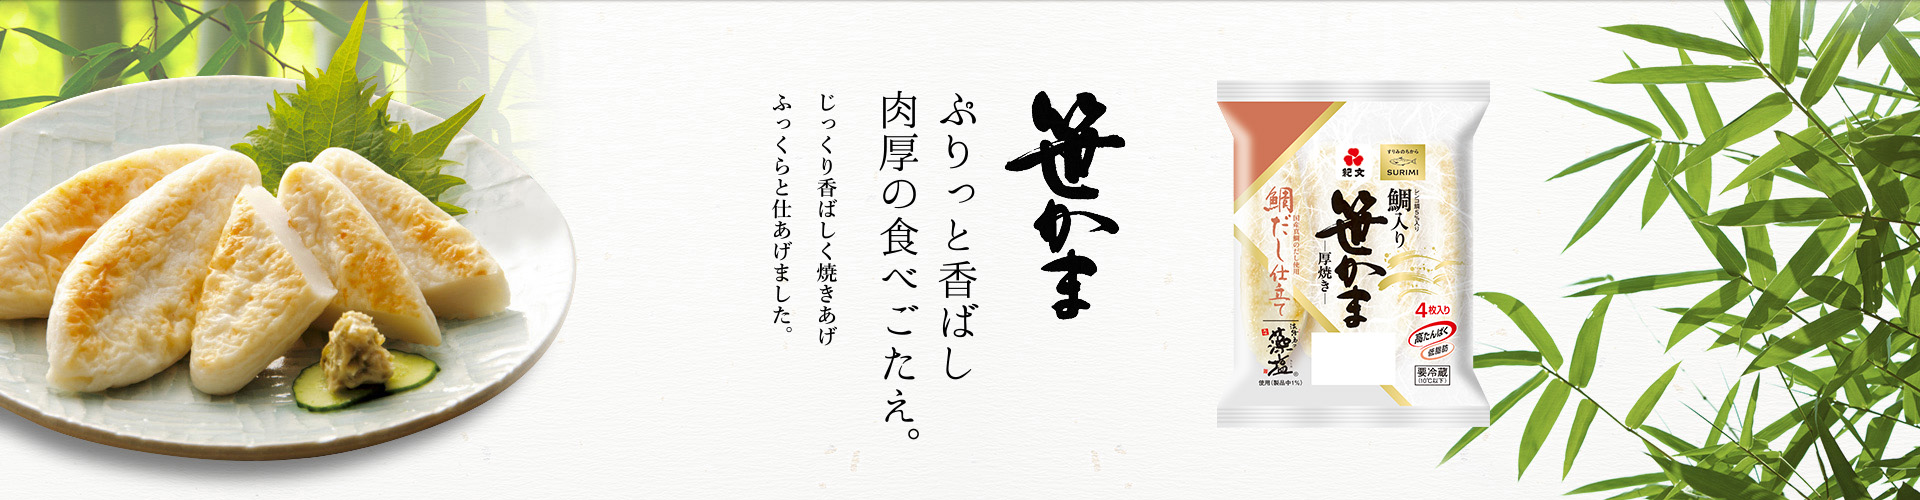 笹かま
ぷりっと香ばし
肉厚の食べごたえ。
じっくり香ばしく焼きあげ
ふっくらと仕あげました。
紀文
すりみのちから
SURIMI
レンコ鯛5%入り
鯛入り
笹かま
厚焼き
国産真鯛のだし使用
鯛だし仕立て
淡路島の
藻塩
使用(製品中1%)
4枚入り
高たんぱく
低脂肪
要冷蔵
(10℃以下)